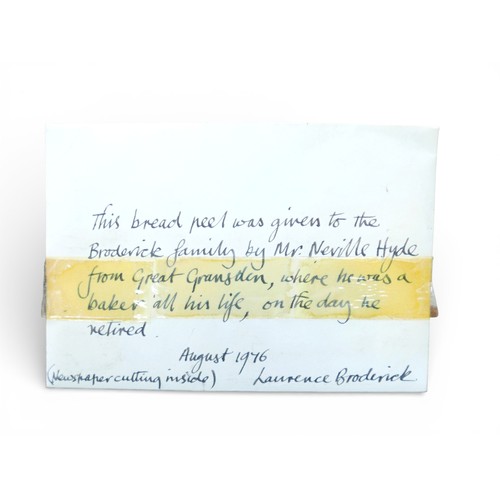 This bread peel was given to the
Broderick family by Mr. Neville Hyde
from Great Gransden, where he was a
baker all his life, on the day he
retired.
August 1976
(Newspaper cutting inside) Laurence Broderick